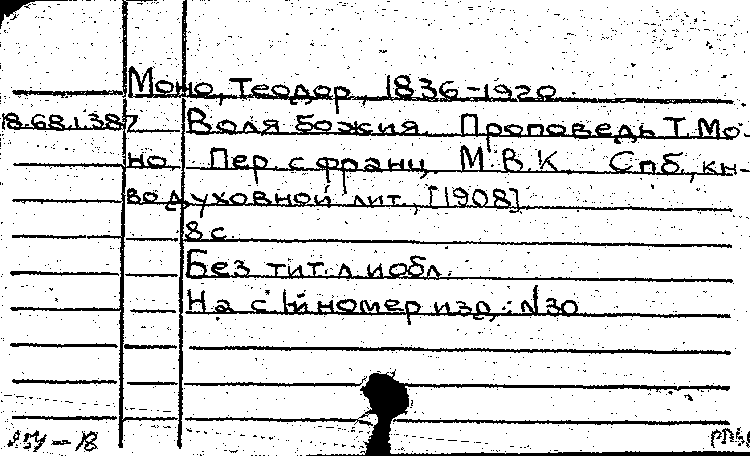 Моно, Теодор, 1836-1920.
18.681.387 Воля божия. Проповедь Т. Мо-
но. Пер. с франц. М.В.К. Спб., кн-
во духовной лит., [1908].
8 с.
Без тит. л. и обл.
На с. 1-й номер изд.: N30